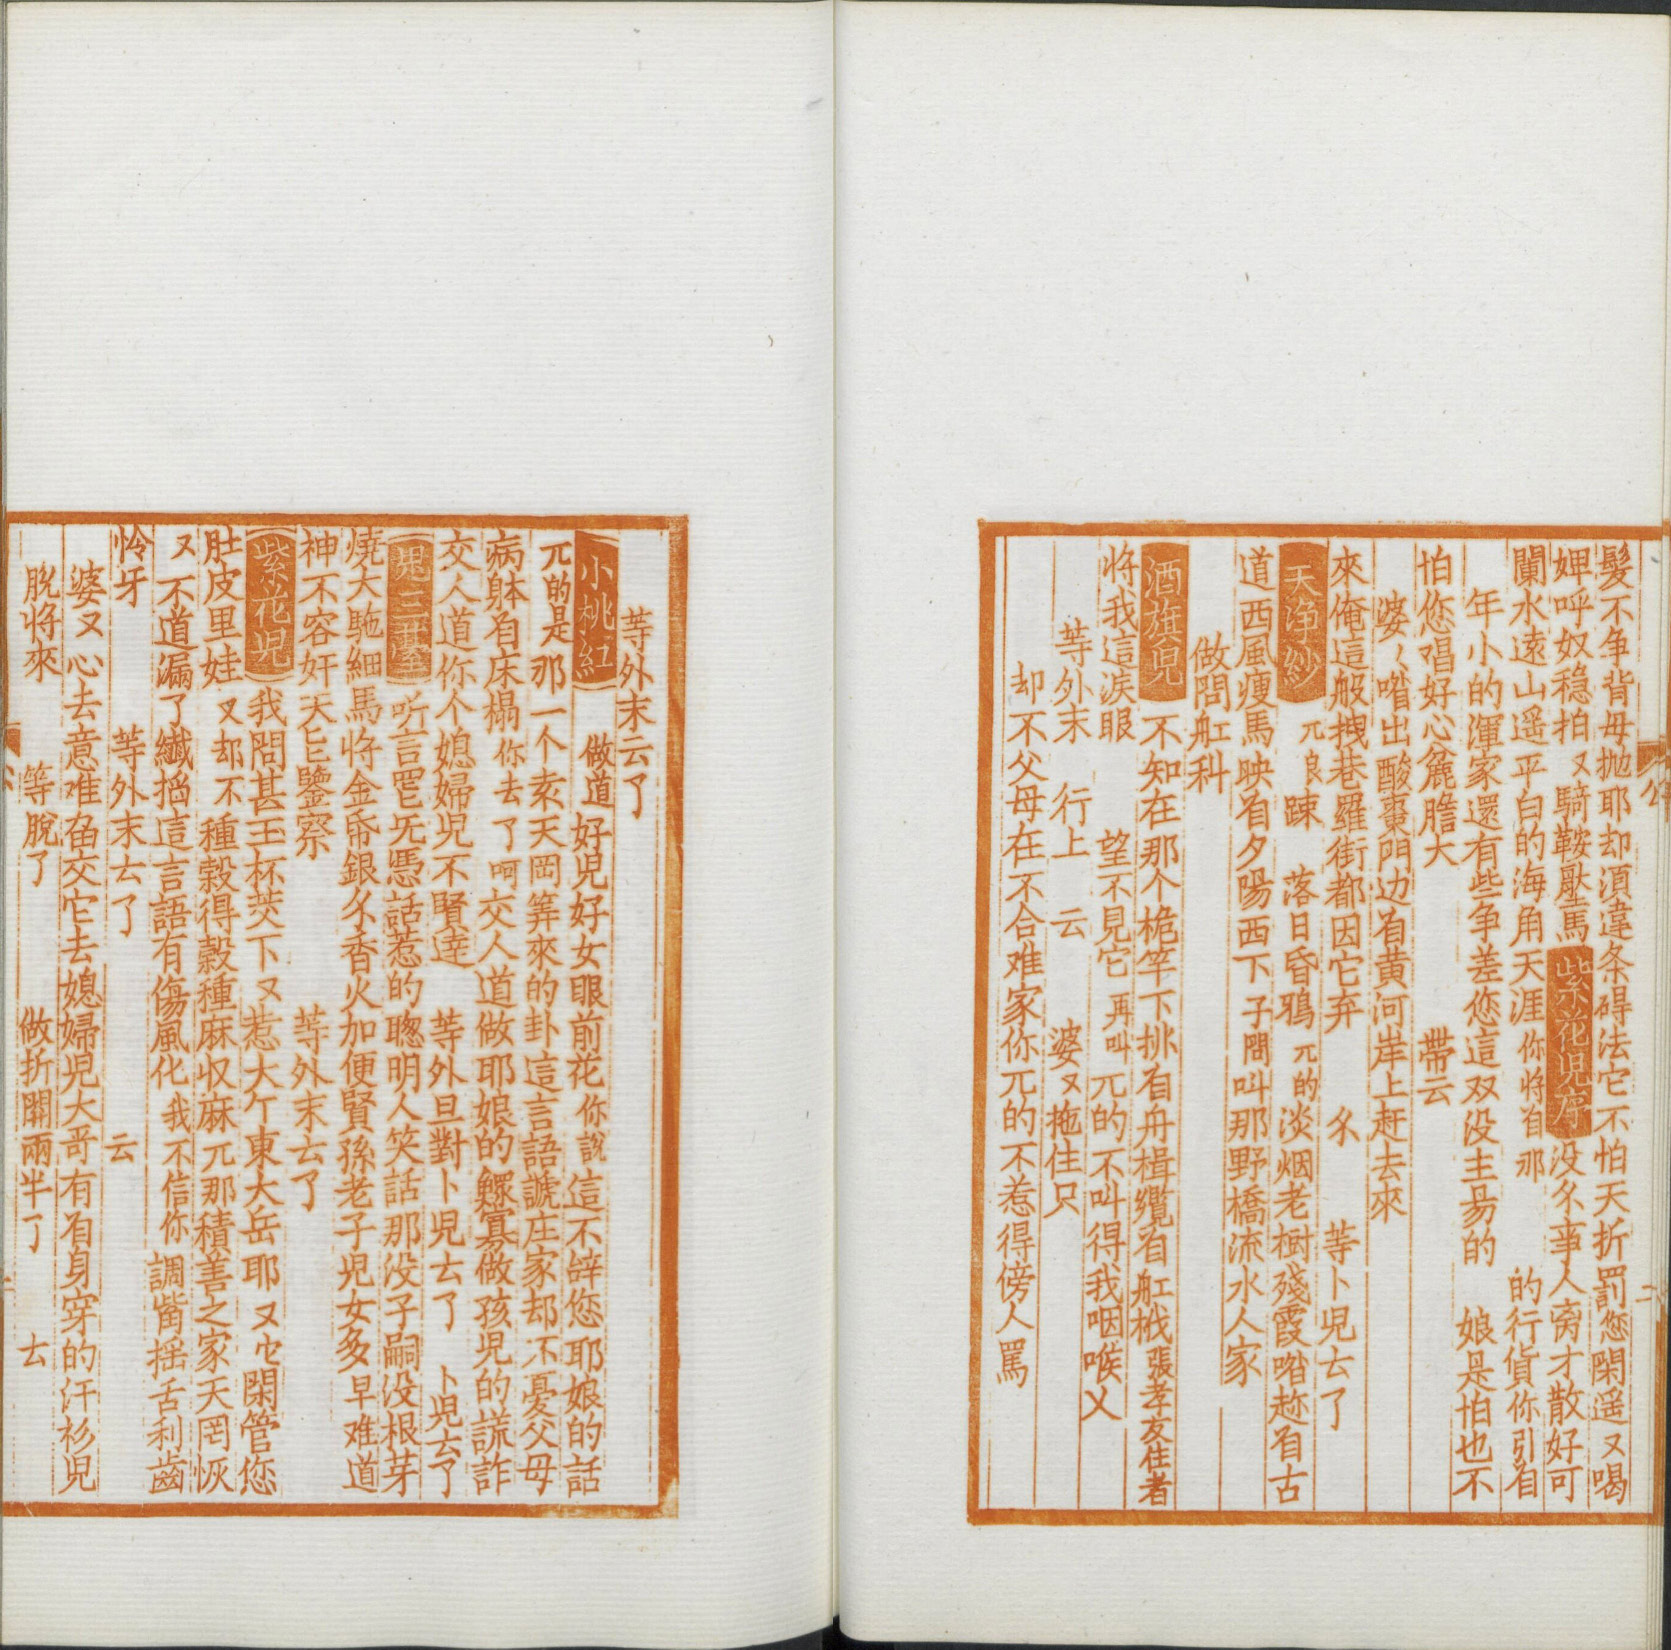 髮不争背母抛耶却湏違条碍法它不怕天折罰您閑遥又喝
婢呼奴穏拍又騎鞍壓馬紫花児序没尒事人旁才散好可
闌水遠山遥平白的海角天涯你將㫖那的行貨你引㫖
年小的渾家還有些争差您這双没主昜的娘是怕也不
怕您唱好心麄膽大帶云
婆〻喒出酸棗門边㫖黄河岸上赶去來
來俺這般拽巷羅街都因它弃尒等卜児去了
天浄紗兀良踈落日昏鴉兀的淡烟老樹殘霞喒趂㫖古
道西風瘦馬映㫖夕陽西下子問叫那野橋流水人家
做問舡科
酒旗児不知在那个桅竿下挑㫖舟楫纜㫖舡栰張孝友住者
將我這淚眼望不見它再叫兀的不叫得我咽喉乂
等外末行上云婆又拖住只
却不父母在不合难家你兀的不惹得傍人罵
等外末云了
小桃紅做道好児好女眼前花你説這不辝您耶娘的話
兀的是那一个索天岡筭來的卦這言語謔庄家却不憂父母
病躰㫖床榻你去了呵交人道做耶娘的鰥寡做孩児的謊詐
交人道你个媳婦児不賢達等外旦對卜児去了卜児去了
鬼三臺听言罷旡憑話惹的聦明人笑話那没子嗣没根芽
燒大馳細馬將金帋銀尒香火加便賢孫老子児女多早难道
神不容奸天㠯鑒察等外末去了
紫花児我問甚玉杯珓下又惹大亇東大岳耶又㔫閑管您
肚皮里娃又却不種穀得穀種麻収麻兀那積善之家天罔恢
又不道漏了纖搯這言語有傷風化我不信你調觜揺舌利齒
怜牙等外末去了云
婆又心去意难留交它去媳婦児大哥有㫖身穿的汗衫児
脫將來等脫了做折開兩半了去